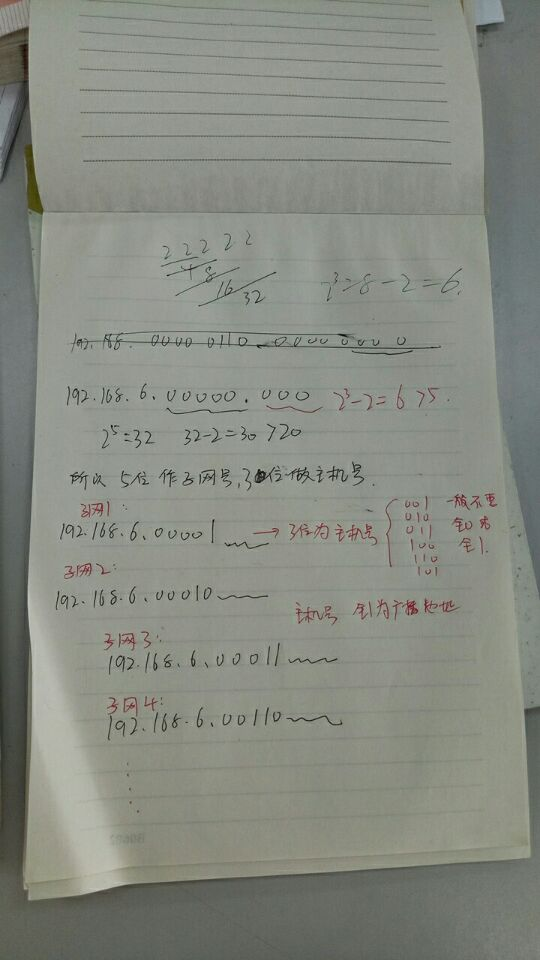 2 2 2 2 2
4 8
16
32
2³=8-2=6.
192.168. 0000 0110 . 0000 0000
192.168.6.00000.000 2³-2=6>5.
2⁵=32 32-2=30>20
所以 5位作子网号,3位做主机号.
子网1:
192.168.6.00001 → 3位为主机号
001
010
011
100
110
101
一般不要
全0和
全1.
子网2:
192.168.6.00010
主机号 全1为广播地址
子网3:
192.168.6.00011
子网4:
192.168.6.00110